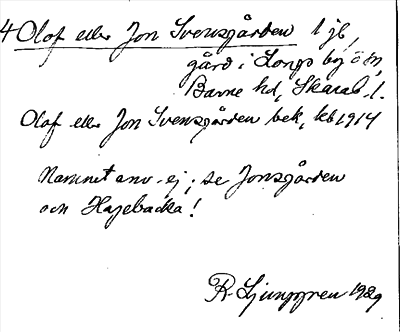 4 Olof eller Jon Svensgården 1 jb,
gård i Longs by o sn,
Barne hd, Skarab. l.
Olof eller Jon Svensgården bek, kb 1914
Namnet anv. ej; se Jonsgården
och Hagebacka!
R. Ljunggren 1929